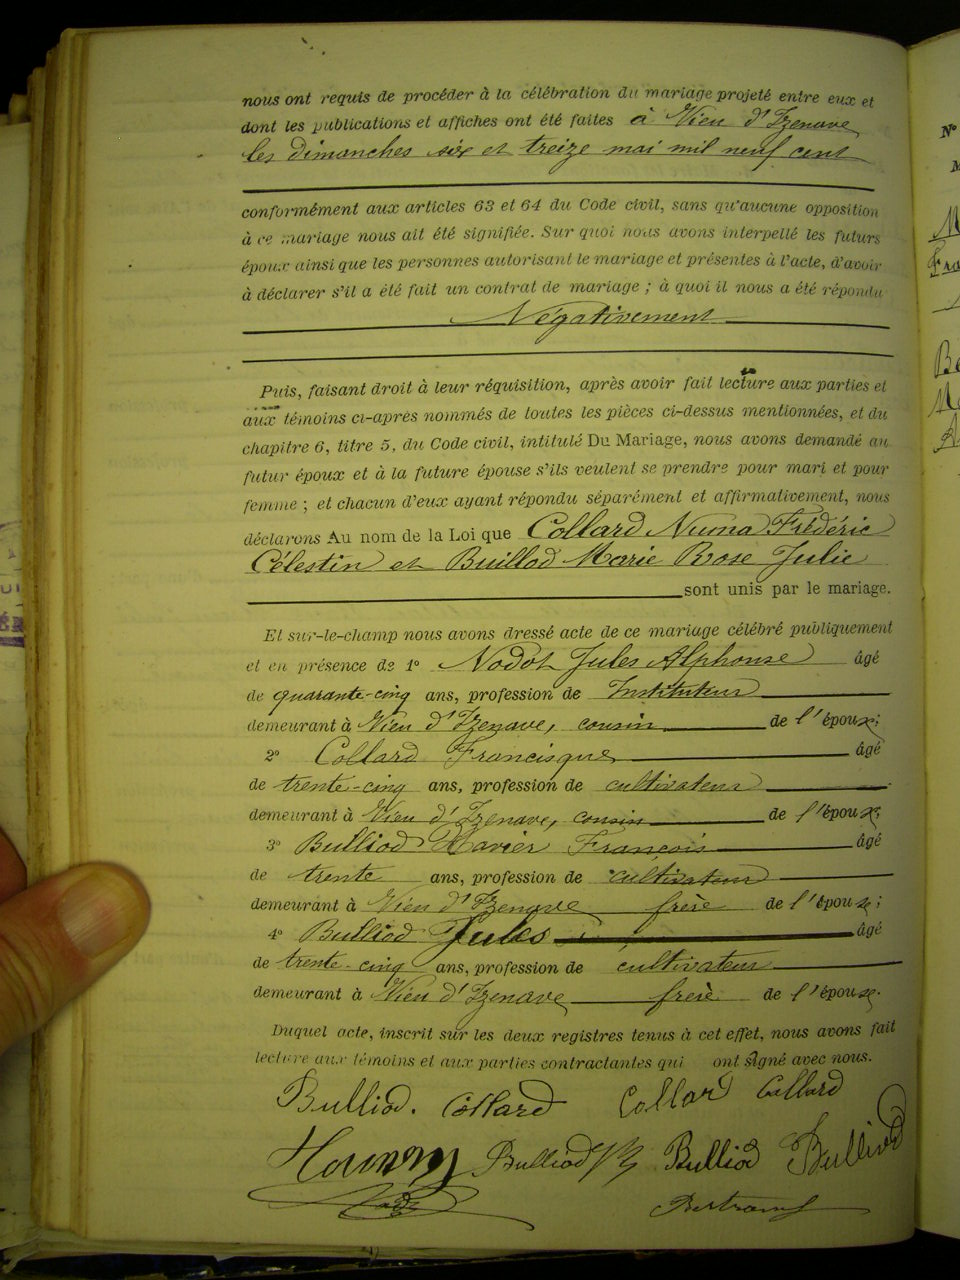 nous ont requis de procéder à la célébration du mariage projeté entre eux et
dont les publications et affiches ont été faites à Vieu d'Izenave
les dimanches six et treize mai mil neuf cent
conformément aux articles 63 et 64 du Code civil, sans qu'aucune opposition
à ce mariage nous ait été signifiée. Sur quoi nous avons interpellé les futurs
époux ainsi que les personnes autorisant le mariage et présentes à l'acte, d'avoir
à déclarer s'il a été fait un contrat de mariage ; à quoi il nous a été répondu
Négativement
Puis, faisant droit à leur réquisition, après avoir fait lecture aux parties et
aux témoins ci-après nommés de toutes les pièces ci-dessus mentionnées, et du
chapitre 6, titre 5, du Code civil, intitulé Du Mariage, nous avons demandé au
futur époux et à la future épouse s'ils veulent se prendre pour mari et pour
femme ; et chacun d'eux ayant répondu séparément et affirmativement, nous
déclarons Au nom de la Loi que Collard Numa Frédéric
Célestin et Buillod Marie Rose Julie
sont unis par le mariage.
Et sur-le-champ nous avons dressé acte de ce mariage célébré publiquement
et en présence de 1° Nodot Jules Alphonse âgé
de quarante-cinq ans, profession de Instituteur
demeurant à Vieu d'Izenave, cousin de l'époux;
2° Collard Francisque âgé
de trente-cinq ans, profession de cultivateur
demeurant à Vieu d'Izenave, cousin de l'époux;
3° Bulliod Xavier François âgé
de trente ans, profession de cultivateur
demeurant à Vieu d'Izenave frère de l'épouse;
4° Bulliod Jules âgé
de trente-cinq ans, profession de cultivateur
demeurant à Vieu d'Izenave frère de l'épouse.
Duquel acte, inscrit sur les deux registres tenus à cet effet, nous avons fait
lecture aux témoins et aux parties contractantes qui ont signé avec nous.
Bulliod. Collard Collard Collard
Bulliod Bulliod Bulliod
Bertrand
N°